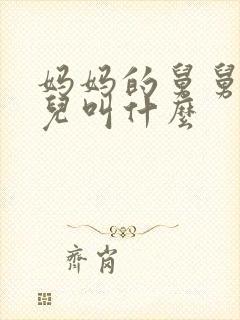 妈妈的舅舅
兒叫什麽
齊肖